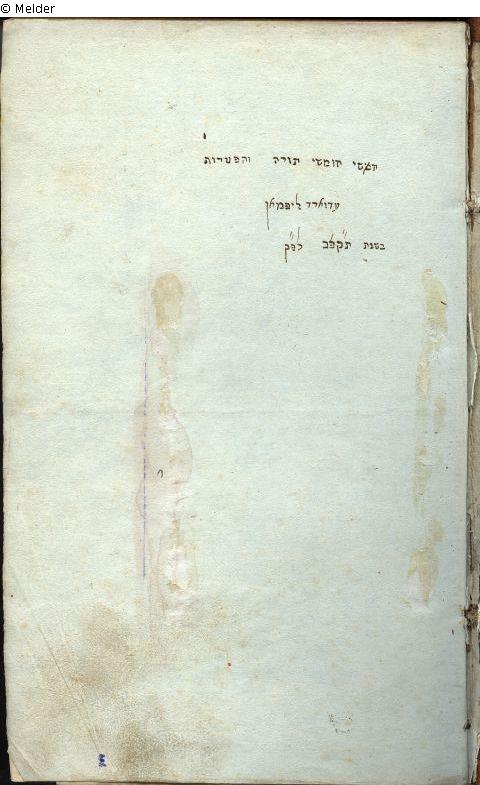 © Melder
חמשי חומשי תורה והפטרות
עדוארד ליפמאן
בשנת תקלב לפק